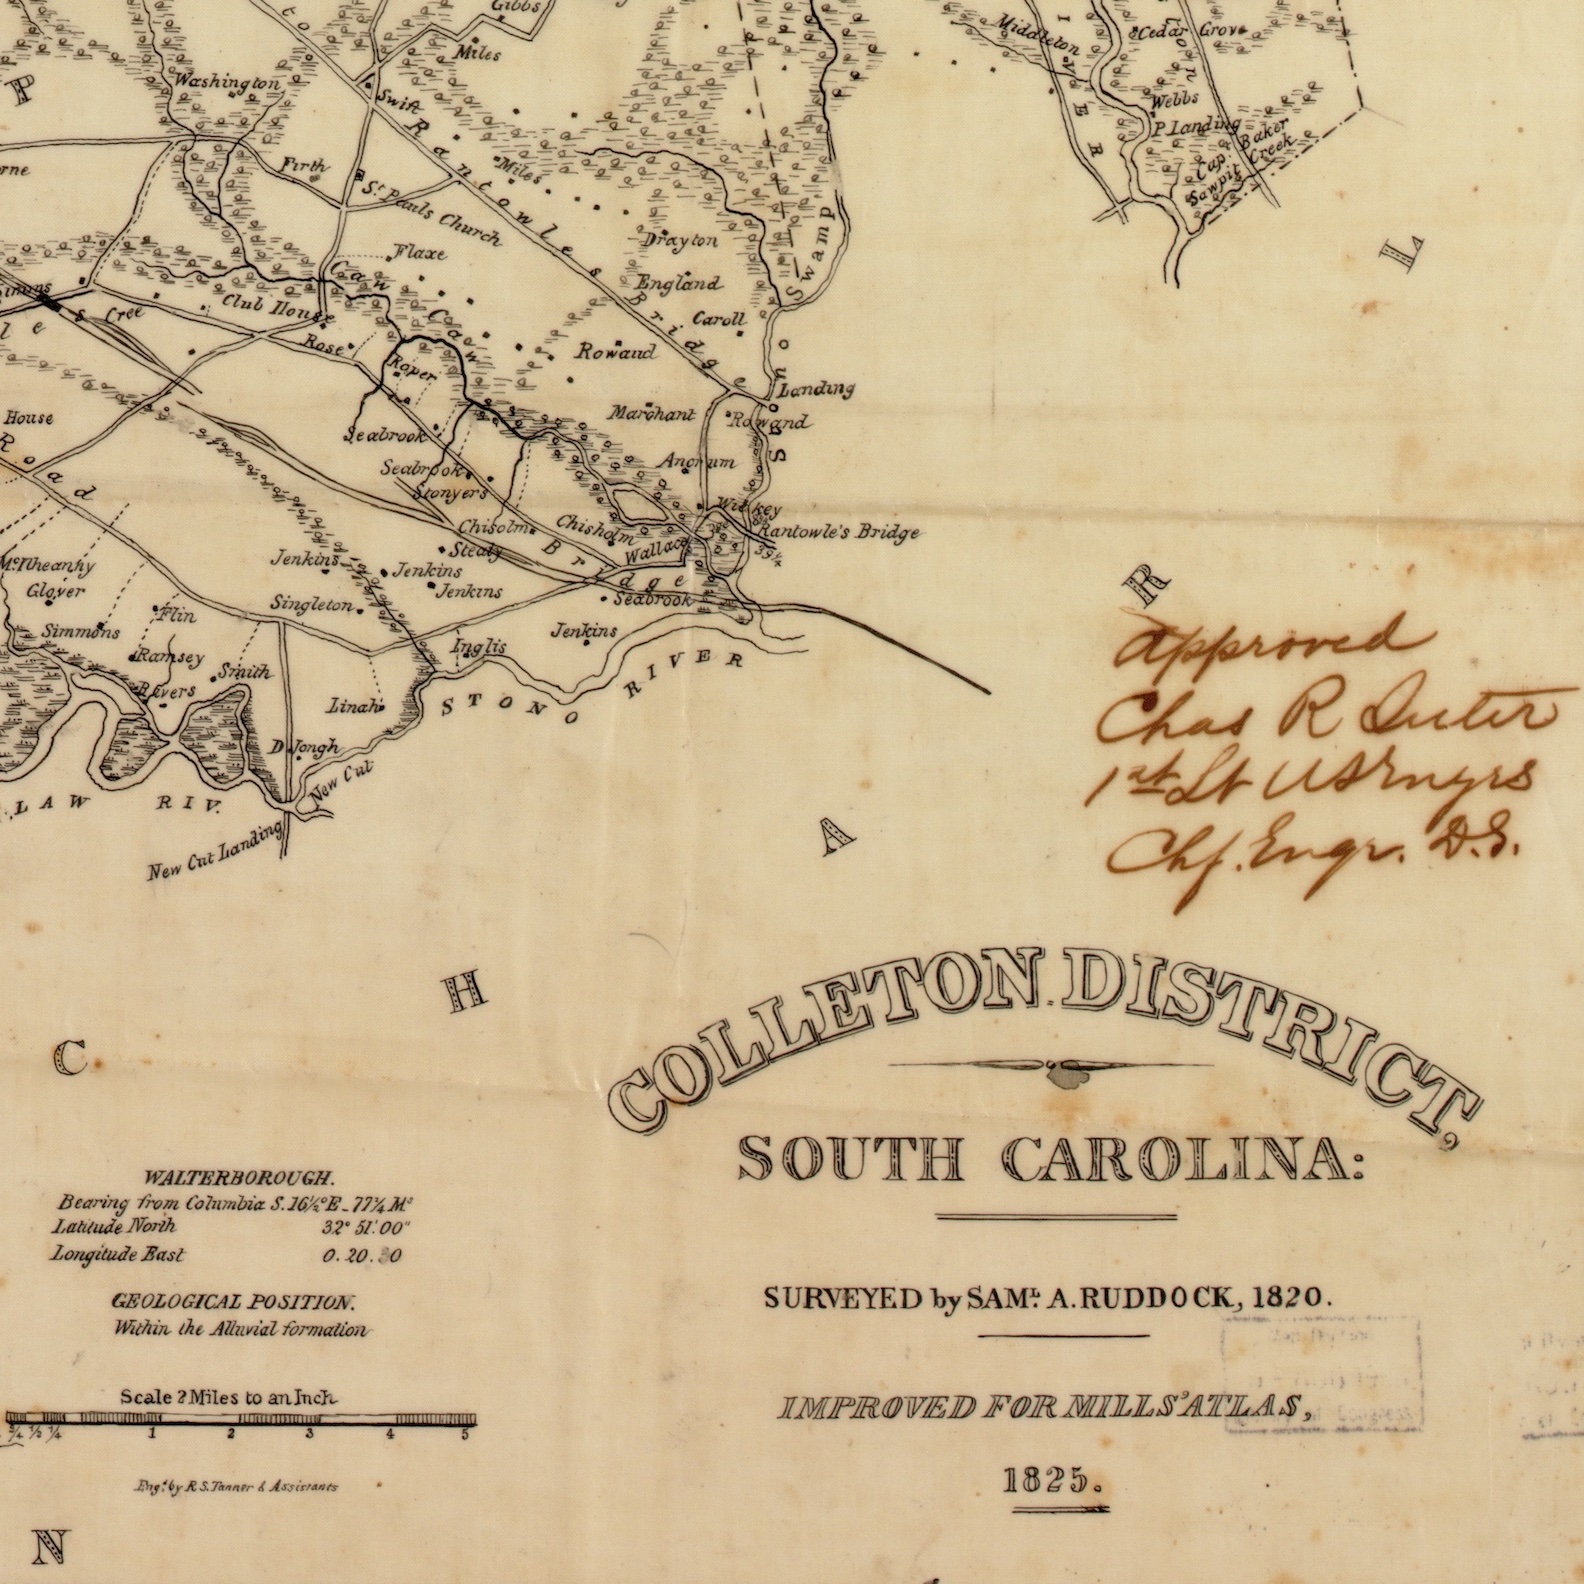 Gibbs
Miles
to
Washington
P
Swift
Rantowles Bridge
Firth
Miles
St. Pauls Church
Drayton
Flaxe
England
Swamp
Caw Caw
Club House
Caroll
s Cree
le
Rose
Rowand
Roper
Landing
House
Marchant
Rowand
Seabrook
Road
Seabrook
Ancrum
Stonyers
Wilkey
Chisolm
Chisholm
Rantowle's Bridge
Wallace
Stealy
Bridge
Jenkins
Jenkins
Jenkins
Glover
Singleton
Seabrook
Flin
Simmons
Jenkins
Inglis
Ramsey
Smith
Rivers
STONO RIVER
Linah
D Jongh
New Cut
LAW RIV.
New Cut Landing
Middleton
Cedar Grove
IVER
Webbs
P Landing
Baker
Cap.
Creek
Sawpit
L
R
A
H
C
N
approved
Chas R Suter
1st Lt US Engrs
Chf. Engr. D.S.
COLLETON DISTRICT,
SOUTH CAROLINA:
SURVEYED by SAML. A. RUDDOCK, 1820.
IMPROVED FOR MILLS' ATLAS,
1825.
WALTERBOROUGH.
Bearing from Columbia S. 16½° E - 77¼ Ms
Latitude North 32° 51' 00"
Longitude East 0. 20. 30
GEOLOGICAL POSITION.
Within the Alluvial formation
Scale 2 Miles to an Inch
¾ ½ ¼ 1 2 3 4 5
Engd. by R S. Tanner & Assistants